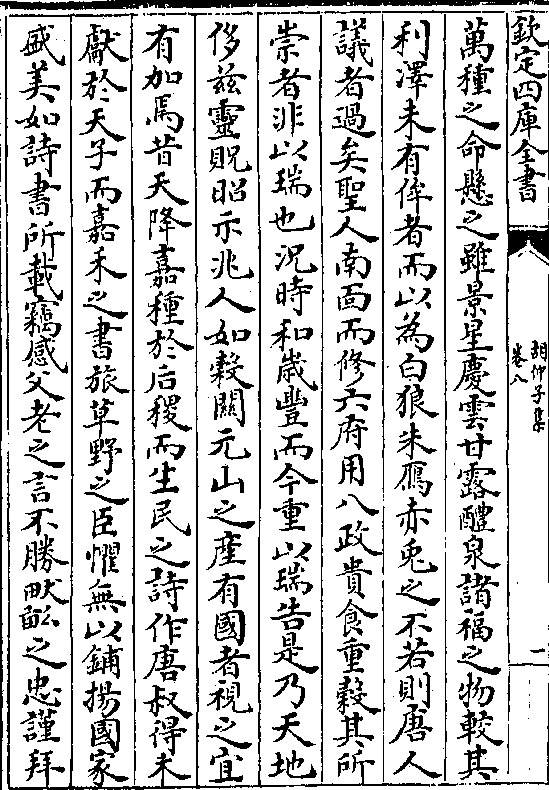 欽定四庫全書
胡仲子集
卷八
一
萬種之命懸之雖景星慶雲甘露醴泉諸福之物較其
利澤未有侔者而以為白狼朱鴈赤兎之不若則唐人
議者過矣聖人南面而修六府用八政貴食重穀其所
崇者非以瑞也況時和歲豐而今重以瑞告是乃天地
侈兹靈貺昭示兆人如穀關元山之産有國者視之宜
有加焉昔天降嘉種於后稷而生民之詩作唐叔得禾
獻於天子而嘉禾之書旅草野之臣懼無以鋪揚國家
盛美如詩書所載竊感父老之言不勝畎畝之忠謹拜